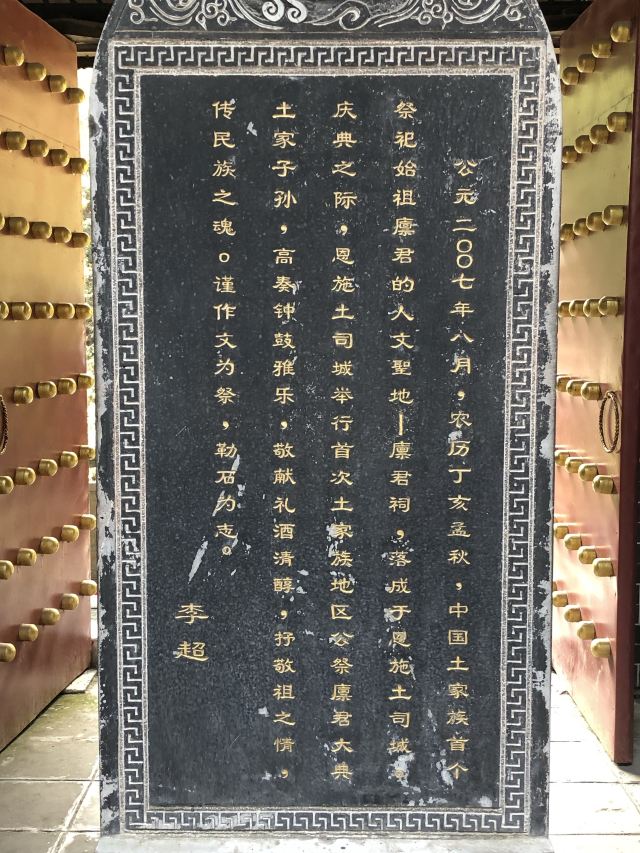 公元二〇〇七年八月，农历丁亥孟秋，中国土家族首个
祭祀始祖廪君的人文聖地—廪君祠，落成于恩施土司城。
庆典之际，恩施土司城举行首次土家族地区公祭廪君大典
土家子孙，高奏钟鼓雅乐，敬献礼酒清醇，抒敬祖之情，
传民族之魂。谨作文为祭，勒石为志。
李超